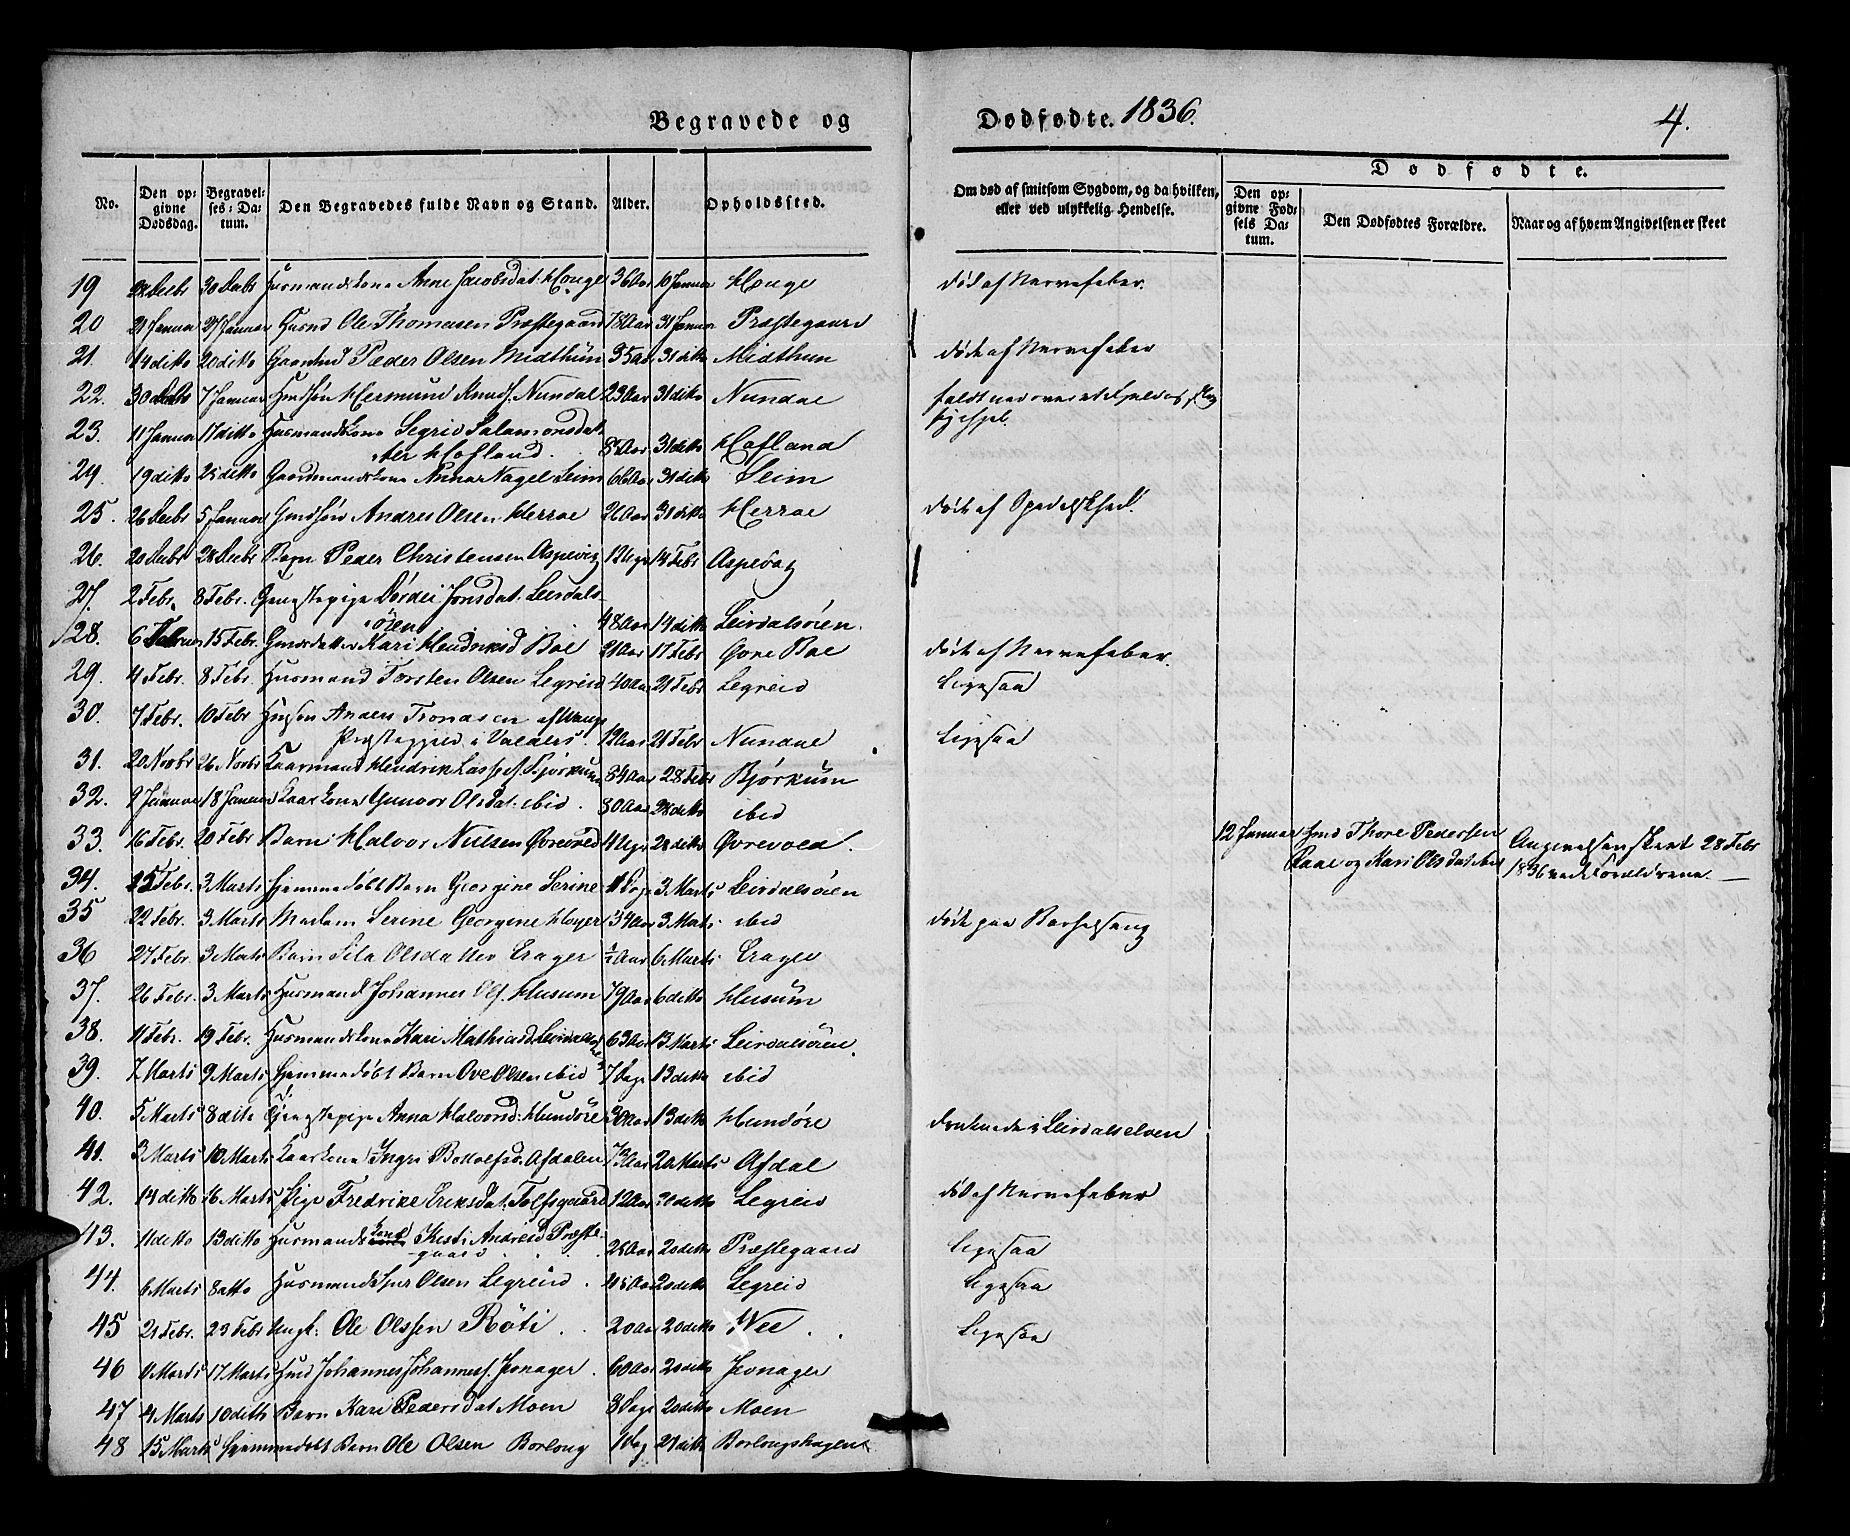 Begravede og Dødfødte. 1836. 4.
No.
Den opgivne Dødsdag.
Begravelses-Datum.
Den Begravedes fulde Navn og Stand.
Alder.
Opholdssted.
Om død af smitsom Sygdom, og da hvilken, eller ved ulykkelig Hendelse.
Dødfødte.
Den opgivne Fødsels Datum.
Den Dødfødtes Forældre.
Naar og af hvem Angivelsen er skeet
19 28 Decbr 30 Decbr Husmandskone Anne Jacobsdat. Houge 36 Aar 10 Januar Houge død af Nervefeber.
20 21 Januar 27 Januar Husmd Ole Thomesen Præstegaard 78 Aar 31 Januar Præstegaard
21. 14 ditto 20 ditto Gaardmd Peder Olsen Midthun 35 Aar 31 ditto Midthun døde af Nervefeber
22. 30 Decbr 7 Januar Gmdsøn Hermund Knuds. Nundal 23 Aar 31 ditto Nundal faldt ned over et Fjeld og
23. 11 Januar 17 ditto Husmandskone Segrid Salamonsdat-
ter Hofland. Aar 31 ditto Hofland
24. 19 ditto 25 ditto Gaardmandskone Anna Nagel Seim 66 Aar 31 ditto Seim
25. 26 Decbr 5 Januar Gmdsøn Andres Olsen Herrae 26 Aar 31 ditto Herrae døde af Spedalskhed.
26. 20 Decbr 28 Decbr Barn Peder Christensen Aspevig 12 Uger 14 Febr Aspevig
27. 2 Febr. 8 Febr. Dørdei Jonsdat. Leerdals-
øren 48 Aar 14 ditto Leirdalsøien.
28. 6 Februar 15 Febr. Gmdsdatter Kari Hendriksd Boe 21 Aar 17 Febr Øvre Boe døde af Nervefeber.
29. 4 Febr. 8 Febr. Husmand Torsten Olsen Legreid 40 Aar 21 Febr Legreid Ligesaa
30. 7 Febr. 10 Febr Anders Trondsen af Wangs
Præstegjeld i Valders. 12 Aar 21 Febr Nundal Ligesaa
31. 20 Novbr 26 Novbr Kaarmand Hendrik Lasses. Bjørkum 84 Aar 28 Febr Bjørkum
32. 9 Januar 18 Januar Kaarkone Gunvor Olsdat. ibid. 80 Aar 28 ditto ibid
33. 16 Febr. 20 Febr Barn Halvor Nielsen Øvrevold 4 Uger 28 ditto Øvrevold. 12 Januar Gmd Thore Pedersen
og Kari Olsdat. ibid Angivelsen skeet 28 Febr
1836 ved Forældrene. —
34. 25 Febr. 3 Marts Hjemmedøbt Barn Georgine Serine 11 Dage 3 Marts Leirdalsøien
35 22 Febr. 3 Marts Madam Serine Georgene Høyer 34 Aar 3 Marts ibid døde paa Barselseng
36 27 Febr. 3 Marts Barn Sela Olsdatter Erager ½ Aar 6 Marts Erager
37. 26 Febr. 3 Marts Husmand Johannes Ols. Husum 79 Aar 6 ditto Husum
38. 11 Febr. 19 Febr. Husmandskone Kari Mathiasd 63 Aar 13 Marts Leirdalsøien.
39. 7 Marts 9 Marts Hjemmedøbt Barn Ove Olsen ibid 7 Dage 13 ditto ibid
40. 5 Marts 8 ditto Anna Halvorsd. Hundøre 30 Aar 13 ditto Hundøre druknede i Leirdalselven
41. 3 Marts 10 Marts Kaarkone Ingri Bottolfsd. Afdalen 73 Aar 20 Marts Afdal
42. 14 ditto 16 Marts Pige Fredrike Eriksdat. Tolfsgaard 12 Aar 20 ditto Legreid død af Nervefeber
43. 11 ditto 13 ditto Husmandskone Kristi Andreid Præste-
gaard 25 Aar 20 ditto Præstegaard Ligesaa
44. 6 Marts 8 ditto Husmand Olsen Legreid. 45 Aar 20 ditto Legreid Ligesaa
45 21 Febr. 23 Febr Ungk: Ole Olssen Røti. 20 Aar 20 ditto Wee Ligesaa
46 11 Marts 17 Marts Gmd Johannes Johanness. Jevnager. 60 Aar 20 ditto Jevnager
47 4 Marts 10 ditto Barn Kari Pedersdat Moen 8 Dage 20 ditto Moen
48 15 Marts Hjemmedøbt Barn Ole Olsen Borlong 1 Dag 27 ditto Borlongshagen